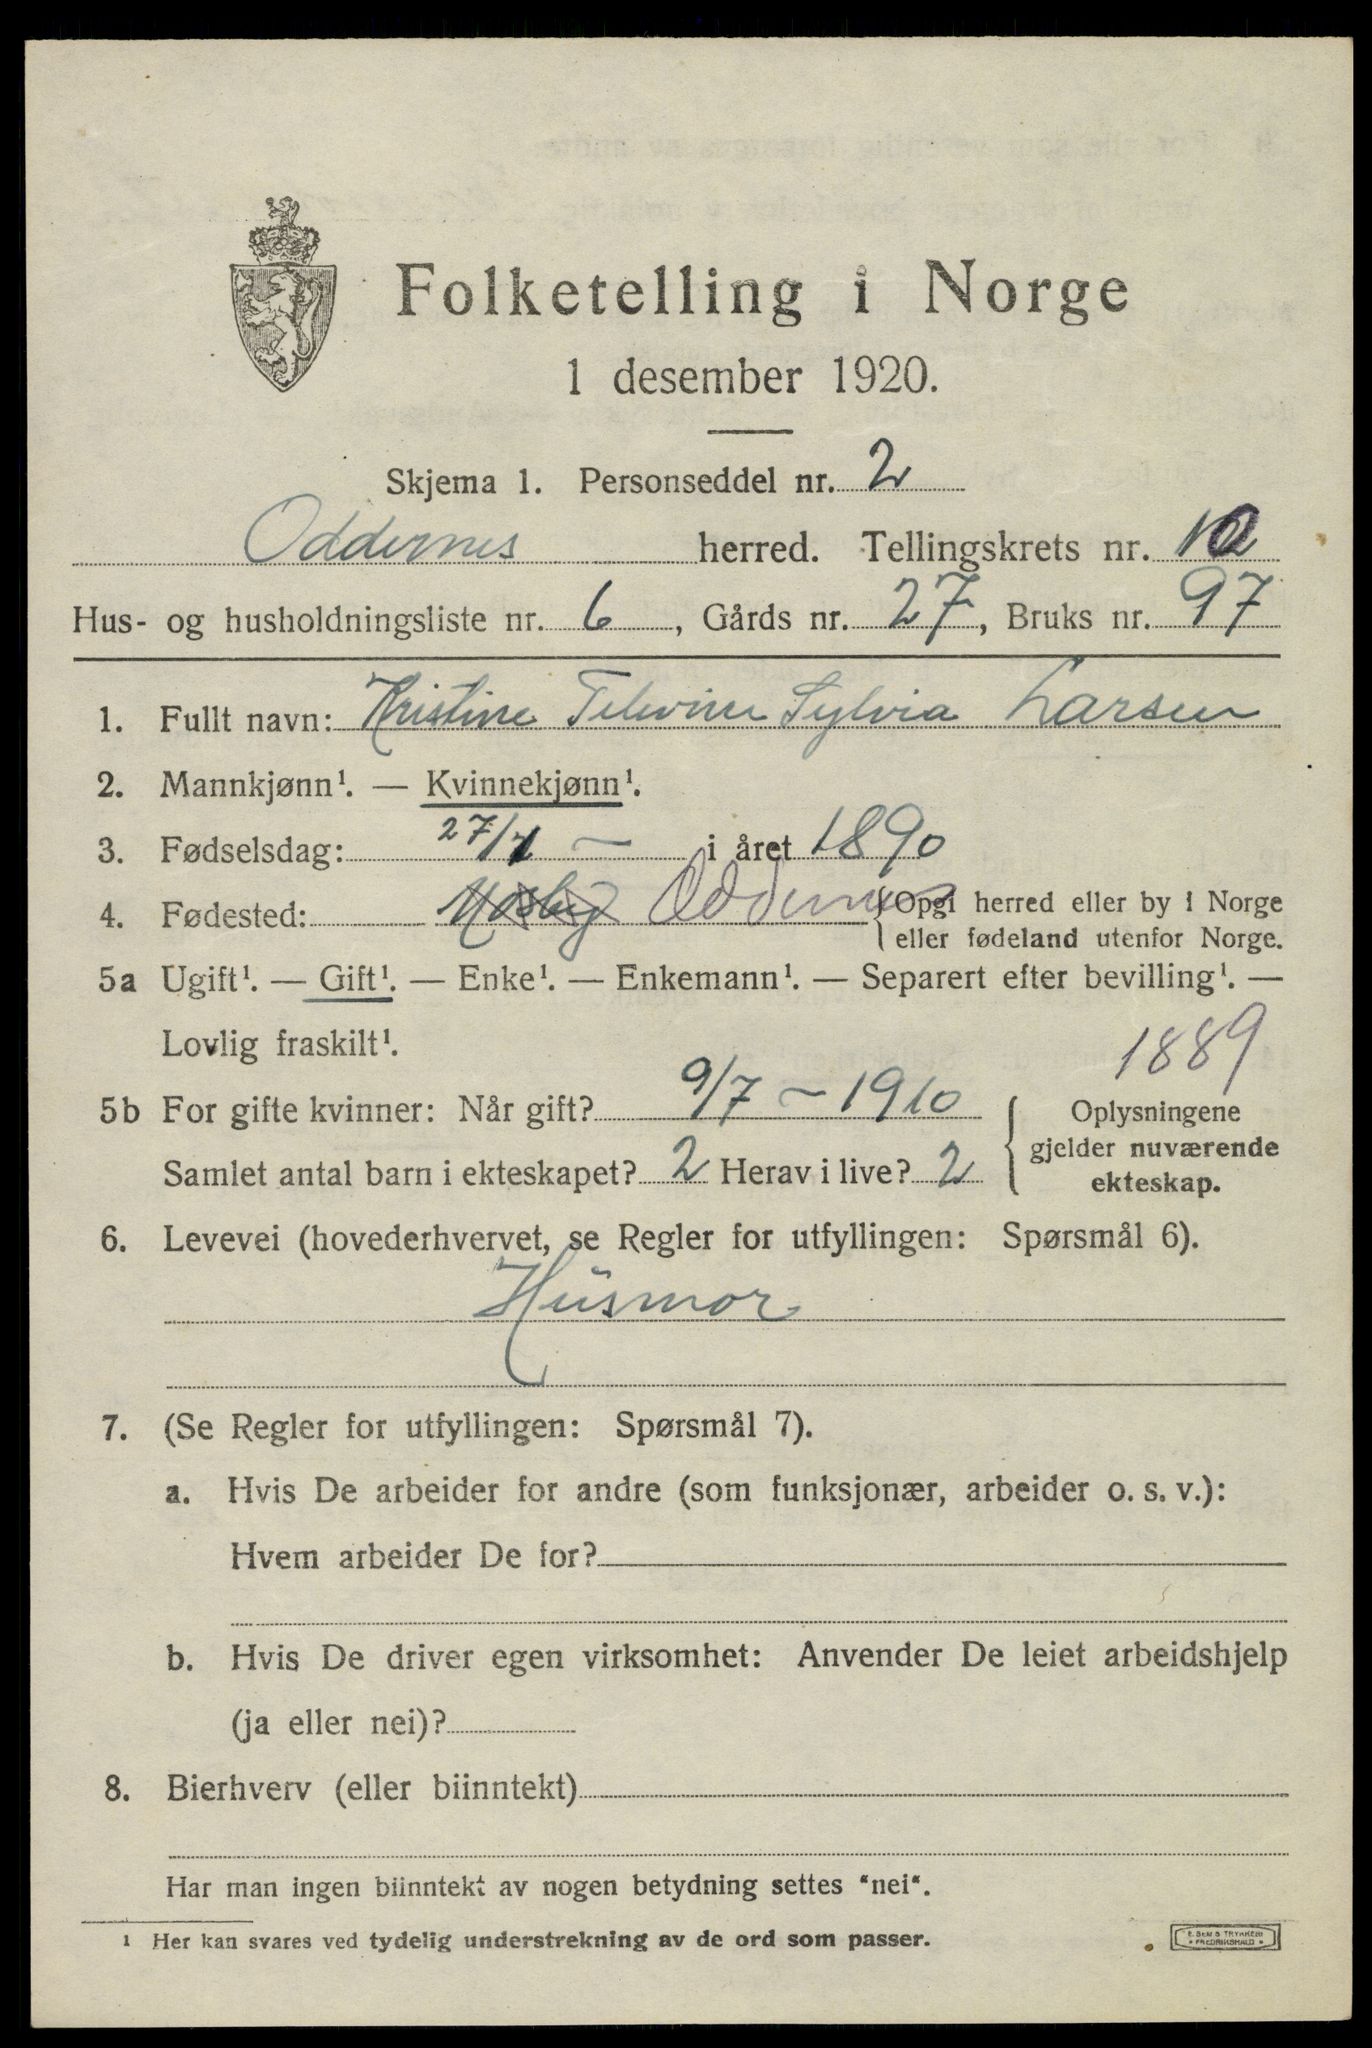 Folketelling i Norge
1 desember 1920.
Skjema 1. Personseddel nr. 2
Oddernes herred. Tellingskrets nr. 10
Hus- og husholdningsliste nr. 6, Gårds nr. 27, Bruks nr. 97
1. Fullt navn: Kristine Sylvia Larsen
2. Mannkjønn¹. — Kvinnekjønn¹.
3. Fødselsdag: 27/1 — i året 1890
4. Fødested: Mosby Oddernes {Opgi herred eller by i Norge
eller fødeland utenfor Norge.
5a Ugift¹. — Gift¹. — Enke¹. — Enkemann¹. — Separert efter bevilling¹. —
Lovlig fraskilt¹.
1889
5b For gifte kvinner: Når gift? 9/7 — 1910
Samlet antal barn i ekteskapet? 2 Herav i live? 2
Oplysningene
gjelder nuværende
ekteskap.
6. Levevei (hovederhvervet, se Regler for utfyllingen: Spørsmål 6).
Husmor
7. (Se Regler for utfyllingen: Spørsmål 7).
a. Hvis De arbeider for andre (som funksjonær, arbeider o. s. v.):
Hvem arbeider De for?
b. Hvis De driver egen virksomhet: Anvender De leiet arbeidshjelp
(ja eller nei)?
8. Bierhverv (eller biinntekt)
Har man ingen biinntekt av nogen betydning settes "nei".
¹ Her kan svares ved tydelig understrekning av de ord som passer.
E. SEM'S TRYKKERI
* FREDRIKSHALD *